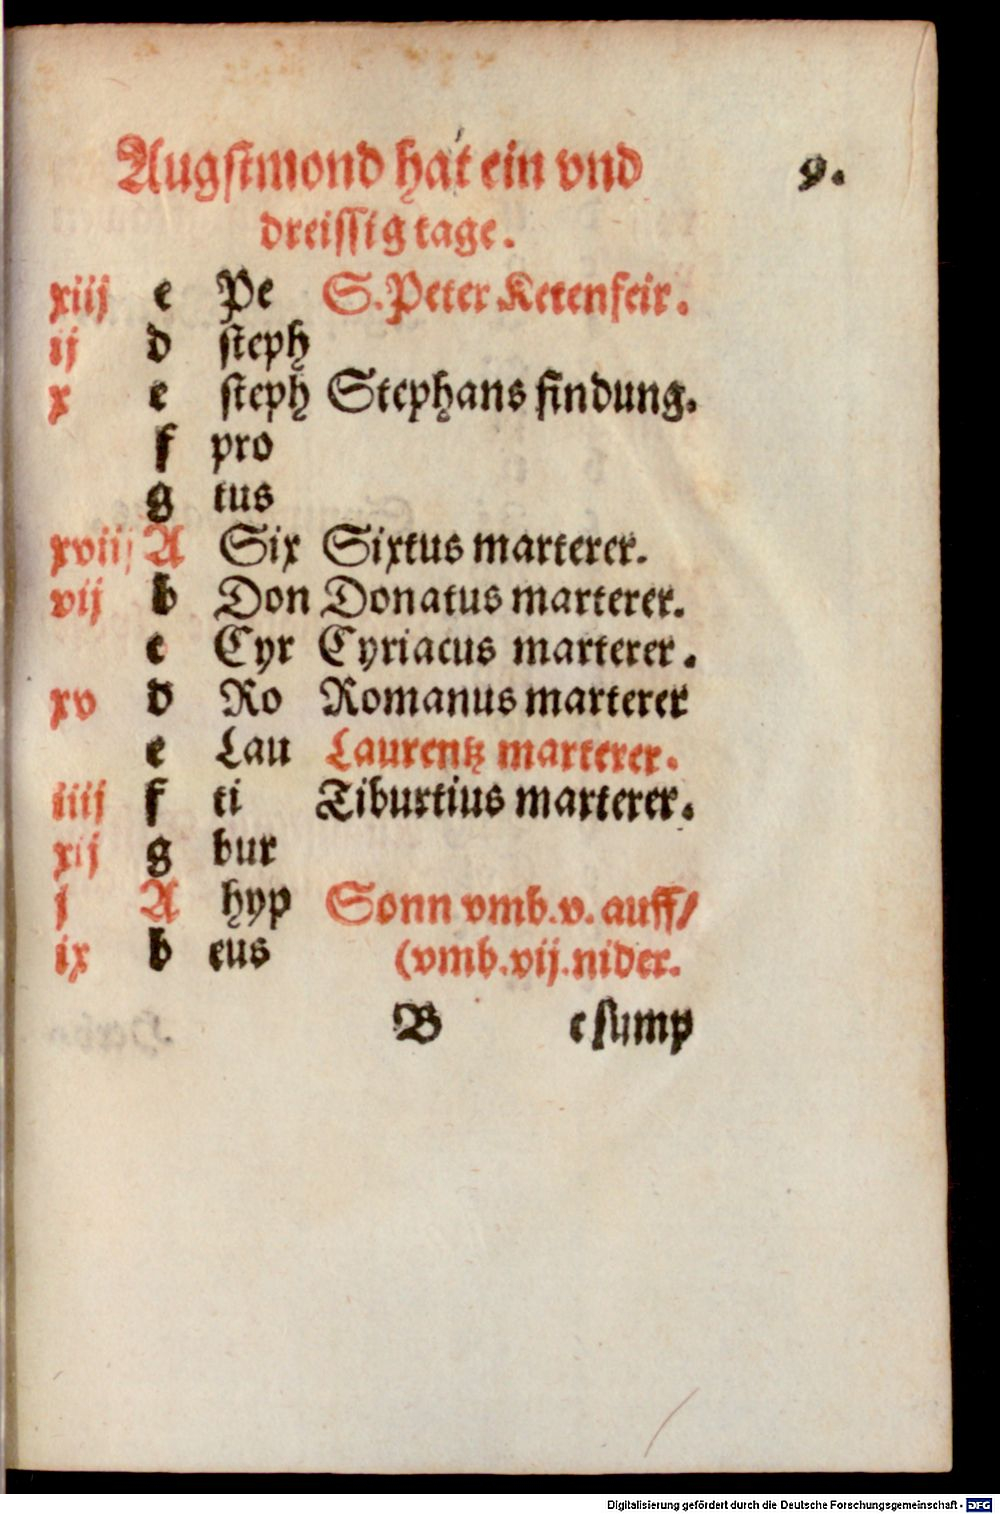 Augstmond hat ein vnd
9.
dreissig tage.
xiij e Pe S. Peter Ketenfeir.
ij d steph
x e steph Stephans findung.
f pro
g tus
xviij A Six Sixtus marterer.
vij b Don Donatus marterer.
c Cyr Cyriacus marterer.
xv d Ro Romanus marterer
e Lau Laurentz marterer.
iiij f ti Tiburtius marterer.
xij g bur
j A hyp Sonn vmb. v. auff/
ix b eus (vmb. vij. nider.
B e sump
Digitalisierung gefördert durch die Deutsche Forschungsgemeinschaft - DFG